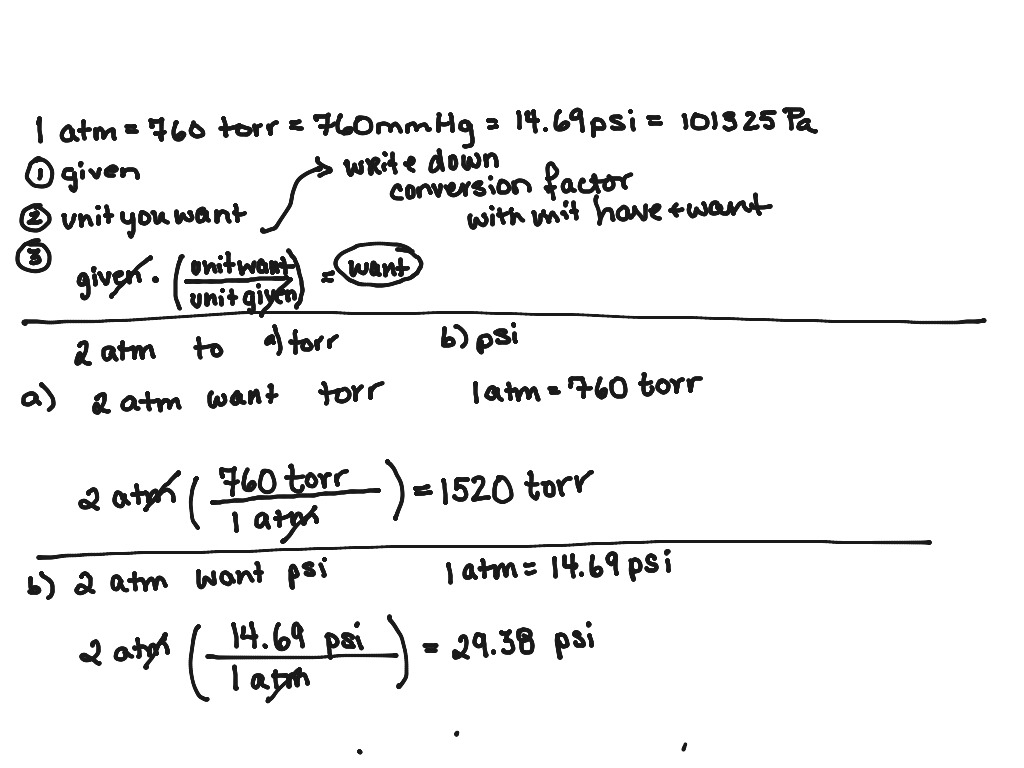 1 atm = 760 torr = 760mmHg = 14.69psi = 101325 Pa
① given
② unit you want → write down conversion factor with unit have + want
③ given · (unit want / unit given) = want
2 atm to a) torr b) psi
a) 2 atm want torr 1 atm = 760 torr
2 atm (760 torr / 1 atm) = 1520 torr
b) 2 atm want psi 1 atm = 14.69 psi
2 atm (14.69 psi / 1 atm) = 29.38 psi